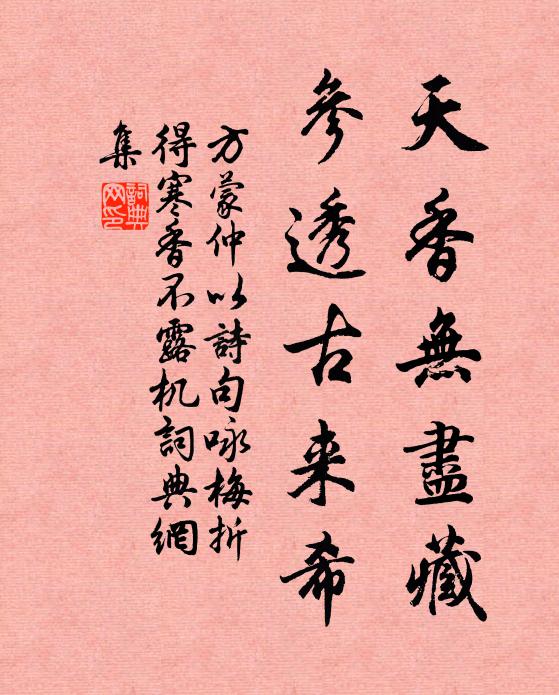 天香無盡藏
參透古来希
方蒙仲以詩句咏梅折
得寒香不露机詞典網
集
詞典
网印